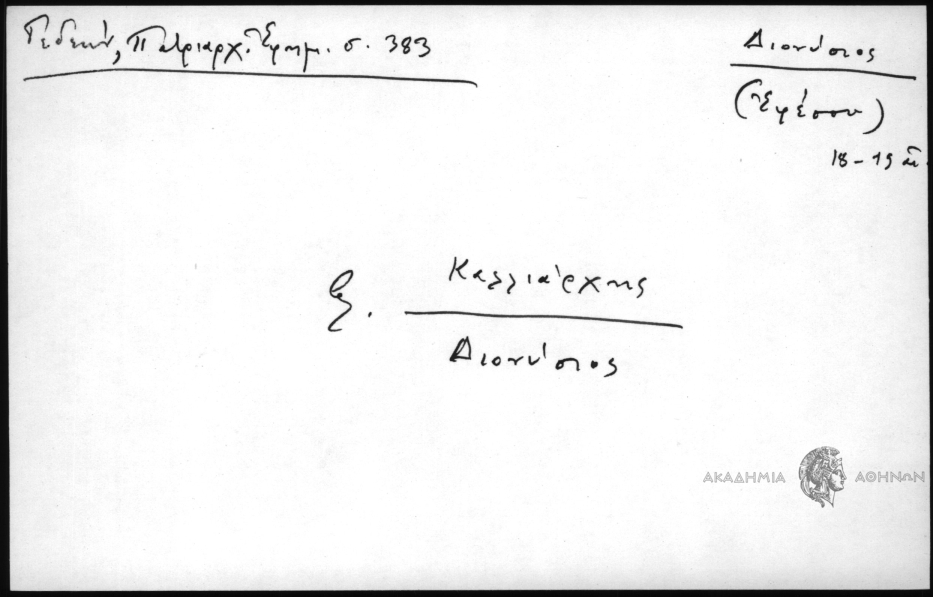 Γεδεών, Πατριαρχ. Ἐφημ. σ. 383
Διονύσιος
(Ἐφέσου)
18-19 αἰ.
Καλλιάρχης
Διονύσιος
ΑΚΑΔΗΜΙΑ ΑΘΗΝΩΝ